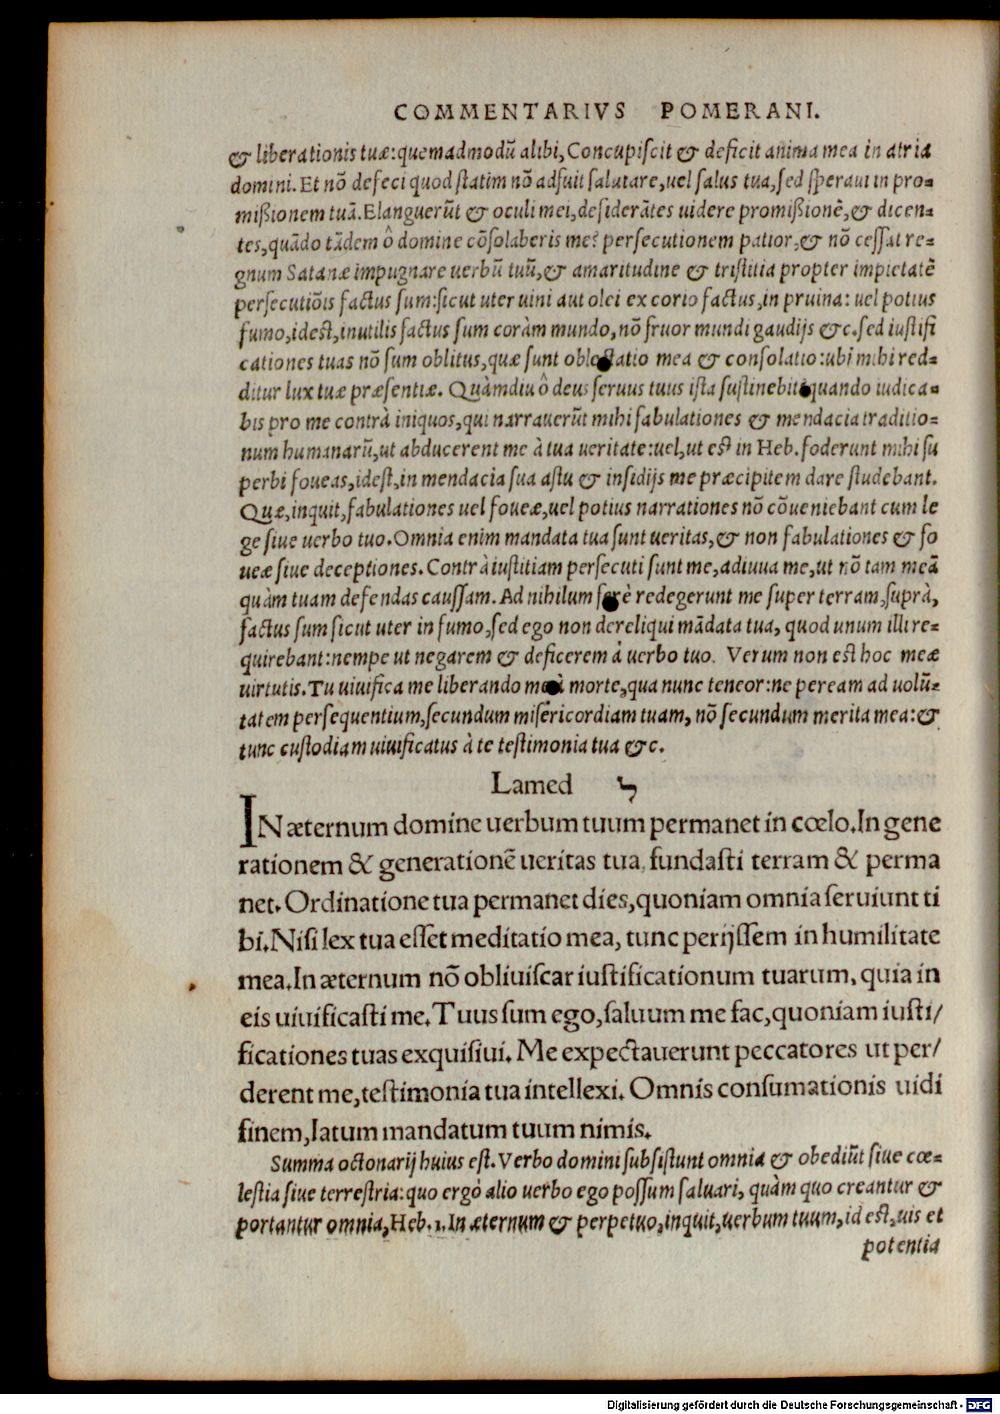 COMMENTARIVS POMERANI.
& liberationis tuæ: quemadmodũ alibi, Concupiſcit & deficit anima mea in atria
domini. Et nõ defeci quod ſtatim nõ adfuit ſalutare, uel ſalus tua, ſed ſperaui in pro⸗
mißionem tuã. Elanguerũt & oculi mei, deſiderãtes uidere promißionẽ, & dicen⸗
tes, quãdo tãdem ô domine cõſolaberis me? perſecutionem patior, & nõ ceſſat re⸗
gnum Satanæ impugnare uerbũ tuũ, & amaritudine & triſtitia propter impietatẽ
perſecutiõis factus ſum: ſicut uter uini aut olei ex corio factus, in pruina: uel potius
fumo, ideſt, inutilis factus ſum coràm mundo, nõ fruor mundi gaudijs &c. ſed iuſtifi
cationes tuas nõ ſum oblitus, quæ ſunt oblectatio mea & conſolatio: ubi mihi red⸗
ditur lux tuæ præſentiæ. Quàmdiu ô deus ſeruus tuus iſta ſuſtinebit quando iudica⸗
bis pro me contrà iniquos, qui narrauerũt mihi fabulationes & mendacia traditio⸗
num humanarũ, ut abducerent me à tua ueritate: uel, ut eſt in Heb. foderunt mihi ſu
perbi foueas, ideſt, in mendacia ſua aſtu & inſidijs me præcipitem dare ſtudebant.
Quæ, inquit, fabulationes uel foueæ, uel potius narrationes nõ cõueniebant cum le
ge ſiue uerbo tuo. Omnia enim mandata tua ſunt ueritas, & non fabulationes & fo
ueæ ſiue deceptiones. Contrà iuſtitiam perſecuti ſunt me, adiuua me, ut nõ tam meã
quàm tuam defendas cauſſam. Ad nihilum ferè redegerunt me ſuper terram, ſuprà,
factus ſum ſicut uter in fumo, ſed ego non dereliqui mãdata tua, quod unum illi re⸗
quirebant: nempe ut negarem & deficerem à uerbo tuo. Verum non eſt hoc meæ
uirtutis. Tu uiuifica me liberando me à morte, qua nunc teneor: ne peream ad uolũ⸗
tatem perſequentium, ſecundum miſericordiam tuam, nõ ſecundum merita mea: &
tunc cuſtodiam uiuificatus à te teſtimonia tua &c.
Lamed ל
IN æternum domine uerbum tuum permanet in cœlo. In gene
rationem & generationẽ ueritas tua, fundaſti terram & perma
net. Ordinatione tua permanet dies, quoniam omnia ſeruiunt ti
bi. Niſi lex tua eſſet meditatio mea, tunc perijſſem in humilitate
mea. In æternum nõ obliuiſcar iuſtificationum tuarum, quia in
eis uiuificaſti me. Tuus ſum ego, ſaluum me fac, quoniam iuſti/
ficationes tuas exquiſiui. Me expectauerunt peccatores ut per/
derent me, teſtimonia tua intellexi. Omnis conſumationis uidi
finem, latum mandatum tuum nimis.
Summa octonarij huius eſt. Verbo domini ſubſiſtunt omnia & obediũt ſiue cœ⸗
leſtia ſiue terreſtria: quo ergò alio uerbo ego poſſum ſaluari, quàm quo creantur &
portantur omnia, Heb. 1. In æternum & perpetuo, inquit, uerbum tuum, id eſt, uis et
potentia
Digitalisierung gefördert durch die Deutsche Forschungsgemeinschaft - DFG